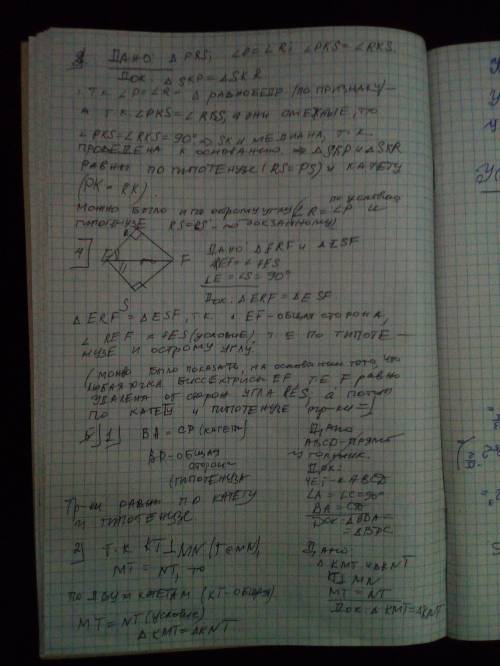 Дано: △PRS, ∠P=∠R; ∠PKS=∠RKS.
Док: △SKP=△SKR
Т.к ∠P=∠R ⇒ △ равнобедр (по признаку)
а т.к ∠PKS=∠RKS, а они смежные, то
∠PKS=∠RKS=90° ⇒ SK и медиана, т.к
проведена к основанию ⇒ △SKP и △SKR
равны по гипотенузе (RS=PS) и катету
(PK=RK).
можно было и по острому углу (∠R=∠P по условию и
гипотенузе RS=PS - по доказанному)
4]
R
E F
S
Дано: △ERF и △ESF
∠REF=∠FES
∠R=∠S=90°
Док: △ERF=△ESF
△ERF=△ESF, т.к. EF-общая сторона,
∠REF=∠FES (условие), т.е по гипоте-
нузе и острому углу.
(можно было показать, на основании того, что
любая точка биссектрисы EF, т.е. F равно
удалена от сторон угла RES; а потом
по катету и гипотенузе тр-ки =)
5] 1] BA=CD (катеты)
BD-общая
сторон
(гипотенуза
Тр-ки равны по катету
и гипотенузе
Дано
ABCD-прямо
угольник.
Док:
∠A=∠C=90°
BA=CD
Док: △BDA=
=△BDC
2) Т.к KT⊥MN (T∈MN),
MT=NT, то
по двум катетам (KT-общая)
MT=NT (условие)
△KMT=△KNT
Дано
△KMT и △KNT
KT⊥MN
MT=NT
Док: △KMT=△KNT